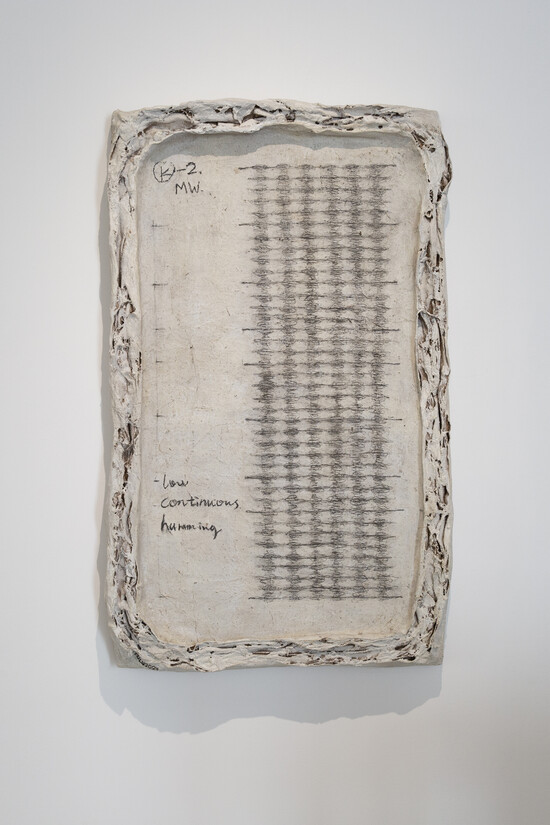 Ⓚ-2.
MW.
-low
continuous
humming